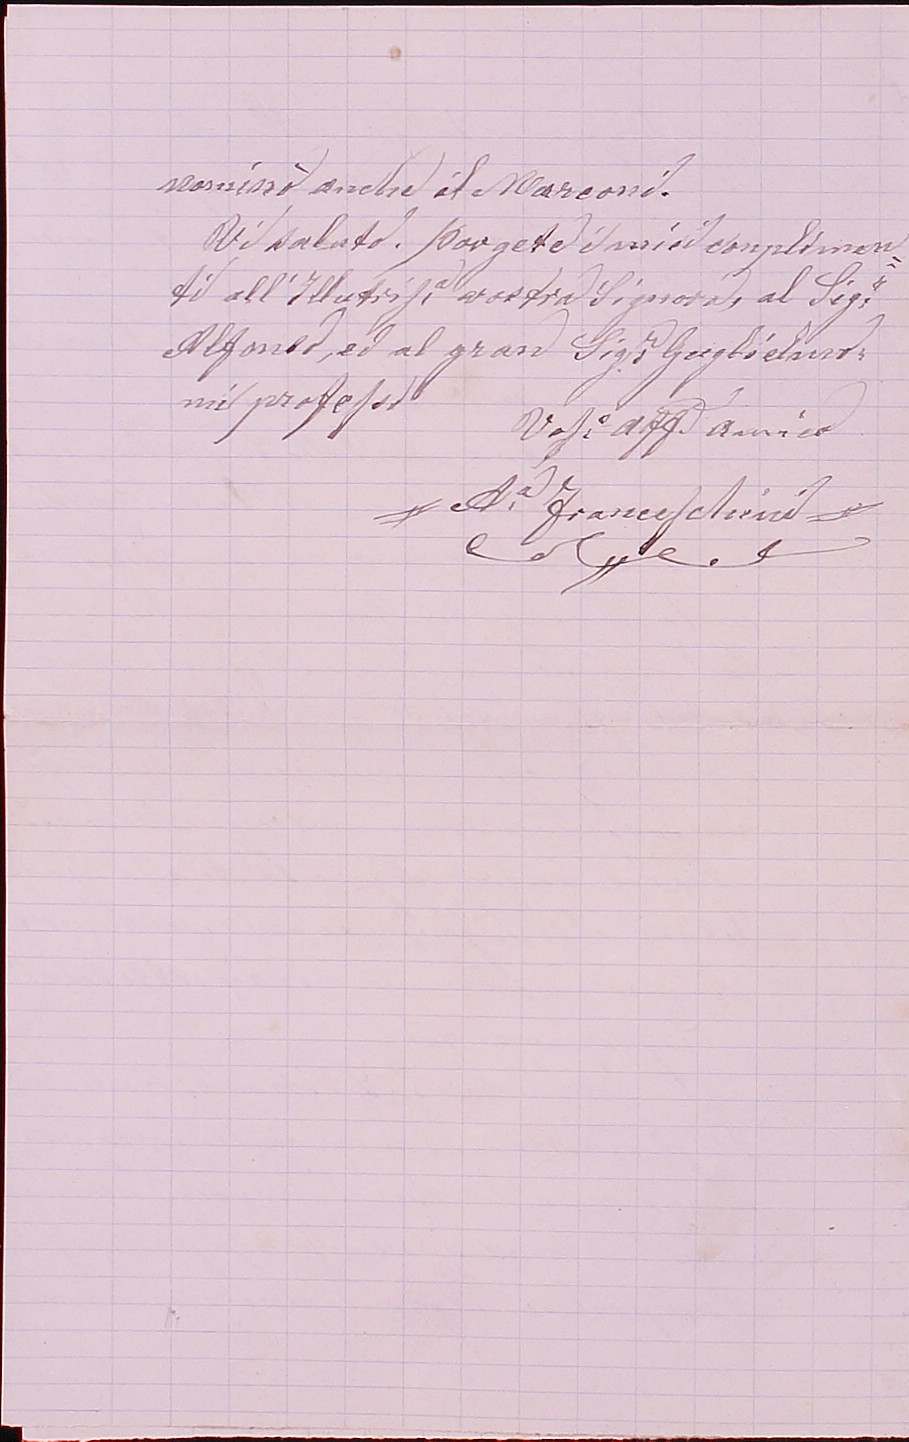 nominò anche il Marconi.
Vi saluto. Porgete i miei complimen=
ti all'Illustriss.a vostra Signora, al Sig.r
Alfonso, ed al gran Sig.r Guglielmo.
mi professo
Vos.o aff.o amico
A.a Franceschini